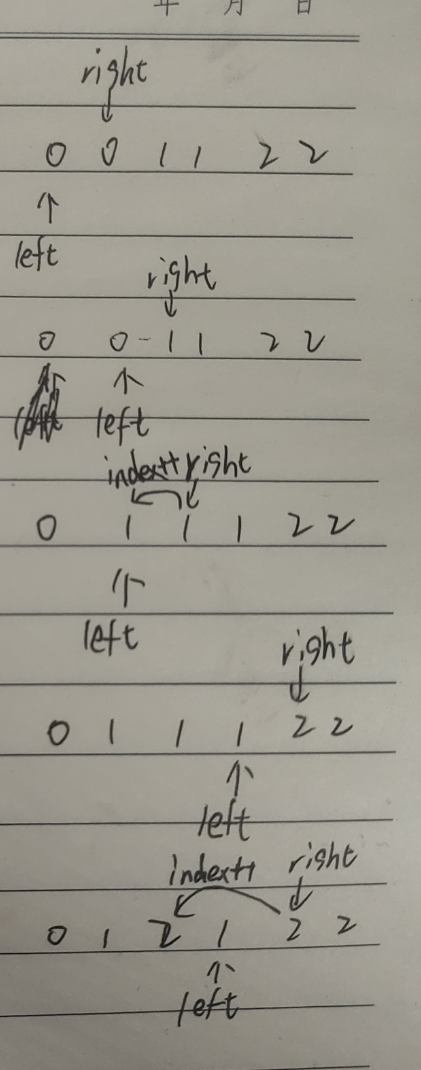 年 月 日
right
0 0 1 1 2 2
left
right
0 0 - 1 1 2 2
left
index++ right
0 1 1 1 2 2
left
right
0 1 1 1 2 2
left
index++ right
0 1 2 1 2 2
left